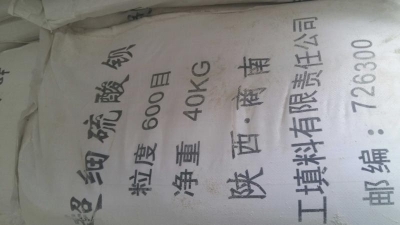 超细硫酸钡
粒度 600目
净重 40KG
陕西·商南
工填料有限责任公司
邮编：726300